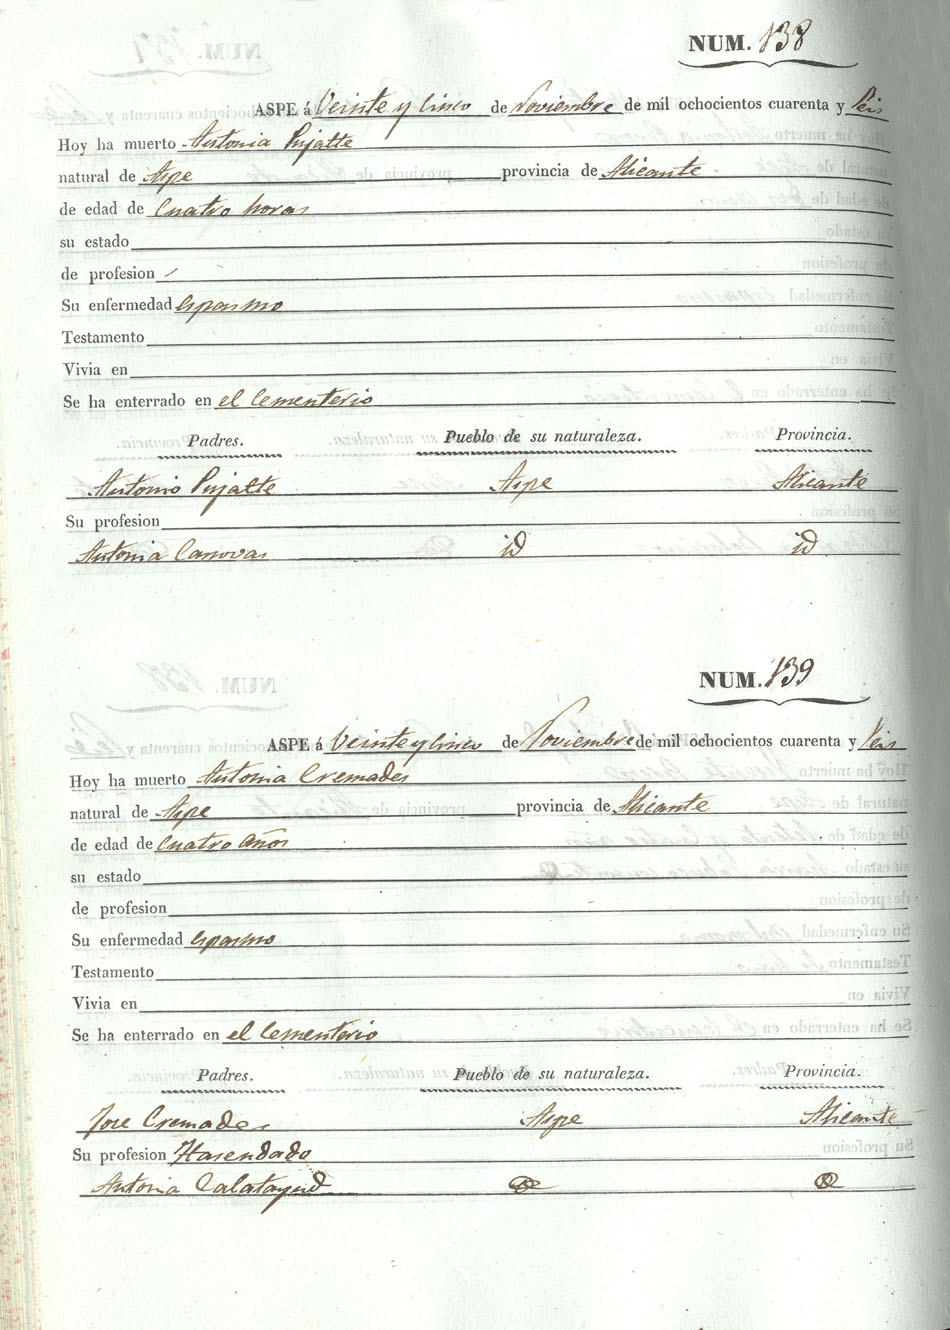 NUM. 138
ASPE á Veinte y Cinco de Noviembre de mil ochocientos cuarenta y Seis
Hoy ha muerto Antonia Pujalte
natural de Aspe provincia de Alicante
de edad de Cuatro horas
su estado
de profesion
Su enfermedad Espasmo
Testamento
Vivia en
Se ha enterrado en el Cementerio
Padres. Pueblo de su naturaleza. Provincia.
Antonio Pujalte Aspe Alicante
Su profesion
Antonia Canovas id id
NUM. 139
ASPE á Veinte y Cinco de Noviembre de mil ochocientos cuarenta y Seis
Hoy ha muerto Antonia Cremades
natural de Aspe provincia de Alicante
de edad de Cuatro Años
su estado
de profesion
Su enfermedad espasmo
Testamento
Vivia en
Se ha enterrado en el Cementerio
Padres. Pueblo de su naturaleza. Provincia.
Jose Cremades Aspe Alicante
Su profesion Hasendado
Antonia Calatayud